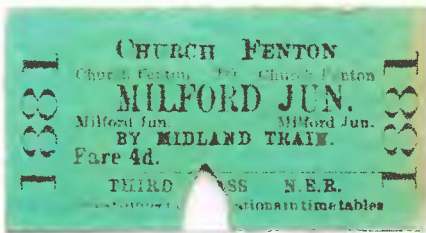 1881
CHURCH FENTON
Church Fenton TO Church Fenton
MILFORD JUN.
Milford Jun. Milford Jun.
BY MIDLAND TRAIN.
Fare 4d.
THIRD N.E.R.
in timetables
1881